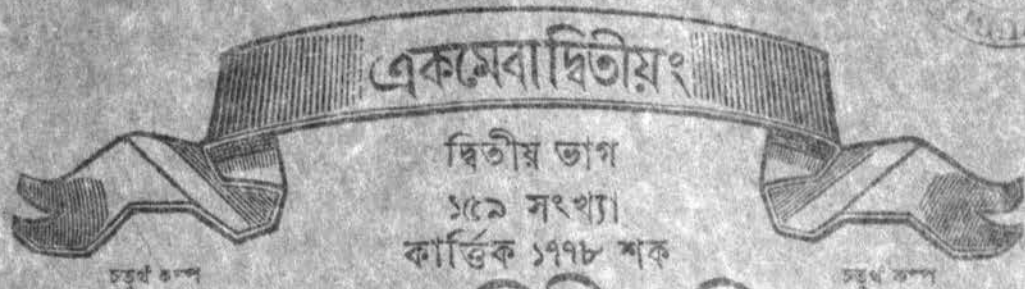 একমেবাদ্বিতীয়ং
দ্বিতীয় ভাগ
১৫৯ সংখ্যা
কার্ত্তিক ১৭৭৮ শক
চতুর্থ কল্প
চতুর্থ কল্প